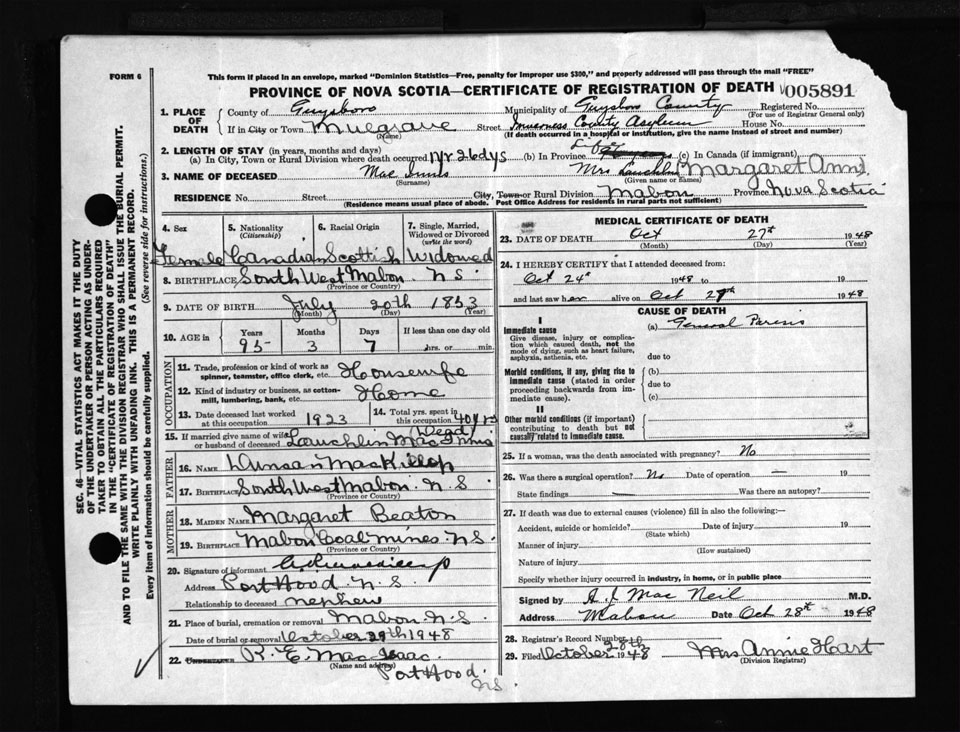 FORM 6
This form if placed in an envelope, marked "Dominion Statistics—Free, penalty for improper use $300," and properly addressed will pass through the mail "FREE"
PROVINCE OF NOVA SCOTIA—CERTIFICATE OF REGISTRATION OF DEATH 005891
1. PLACE OF DEATH
County of Guysboro Municipality of Guysboro County Registered No.
(For use of Registrar General only)
If in City or Town Mulgrave Street Inverness County Asylum House No.
(Name) (If death occurred in a hospital or institution, give the name instead of street and number)
2. LENGTH OF STAY (in years, months and days)
(a) In City, Town or Rural Division where death occurred 1 yr 26 dys (b) In Province Life (c) In Canada (if immigrant)
3. NAME OF DECEASED Mac Innis Mrs Lauchlin Margaret Ann
(Surname) (Given name or names)
RESIDENCE No. Street City, Town or Rural Division Mabou Province Nova Scotia
(Residence means usual place of abode. Post Office Address for residents in rural parts not sufficient)
4. Sex 5. Nationality (Citizenship) 6. Racial Origin 7. Single, Married, Widowed or Divorced (write the word)
Female Canadian Scottish Widowed
8. BIRTHPLACE South West Mabou N S
(Province or Country)
9. DATE OF BIRTH July 20th 1853
(Month) (Day) (Year)
10. AGE in Years Months Days If less than one day old
95 3 7 hrs. or min.
OCCUPATION
11. Trade, profession or kind of work as spinner, teamster, office clerk, etc. Housewife
12. Kind of industry or business, as cotton-mill, lumbering, bank, etc. Home
13. Date deceased last worked at this occupation 1923 14. Total yrs. spent in this occupation 40 yrs
15. If married give name of wife or husband of deceased Lauchlin Mac Innis (Dead)
FATHER
16. NAME Dunsan MacKillop
17. BIRTHPLACE South West Mabou N S
(Province or Country)
MOTHER
18. MAIDEN NAME Margaret Beaton
19. BIRTHPLACE Mabou Coal Mines N S
(Province or Country)
20. Signature of informant
Address Port Hood N. S
Relationship to deceased nephew
21. Place of burial, cremation or removal Mabou N. S
Date of burial or removal October 29th 1948
22. UNDERTAKER R. E. Mac Isaac
(Name and address)
Port Hood
NS.
MEDICAL CERTIFICATE OF DEATH
23. DATE OF DEATH Oct 27th 1948
(Month) (Day) (Year)
24. I HEREBY CERTIFY that I attended deceased from:
Oct 24th 1948 to 19
and last saw her alive on Oct 27th 1948
CAUSE OF DEATH
I
Immediate cause (a) General Paresis
Give disease, injury or complication which caused death, not the mode of dying, such as heart failure, asphyxia, asthenia, etc.
due to
Morbid conditions, if any, giving rise to immediate cause (stated in order proceeding backwards from immediate cause).
(b)
due to
(c)
II
Other morbid conditions (if important) contributing to death but not causally related to immediate cause.
25. If a woman, was the death associated with pregnancy? No
26. Was there a surgical operation? No Date of operation — 19
State findings — Was there an autopsy?
27. If death was due to external causes (violence) fill in also the following:—
Accident, suicide or homicide? Date of injury 19
(State which)
Manner of injury
(How sustained)
Nature of injury
Specify whether injury occurred in industry, in home, or in public place
Signed by A. J Mac Neil M.D.
Address Mabou Date Oct 28th 1948
28. Registrar's Record Number
29. Filed October 28th 1948 Mrs Annie Hart
(Division Registrar)
SEC. 46—VITAL STATISTICS ACT MAKES IT THE DUTY
OF THE UNDERTAKER OR PERSON ACTING AS UNDERTAKER TO OBTAIN ALL THE PARTICULARS REQUIRED
IN THE "CERTIFICATE OF REGISTRATION OF DEATH"
AND TO FILE THE SAME WITH THE DIVISION REGISTRAR WHO SHALL ISSUE THE BURIAL PERMIT.
WRITE PLAINLY WITH UNFADING INK. THIS IS A PERMANENT RECORD.
Every item of information should be carefully supplied. (See reverse side for instructions.)